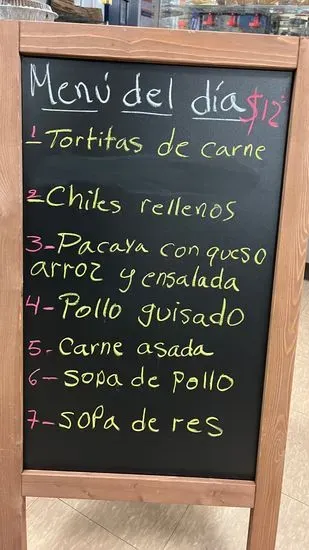 Menú del día $12
1 Tortitas de carne
2-Chiles rellenos
3-Pacaya con queso
arroz y ensalada
4-Pollo guisado
5-Carne asada
6-sopa de pollo
7-sopa de res